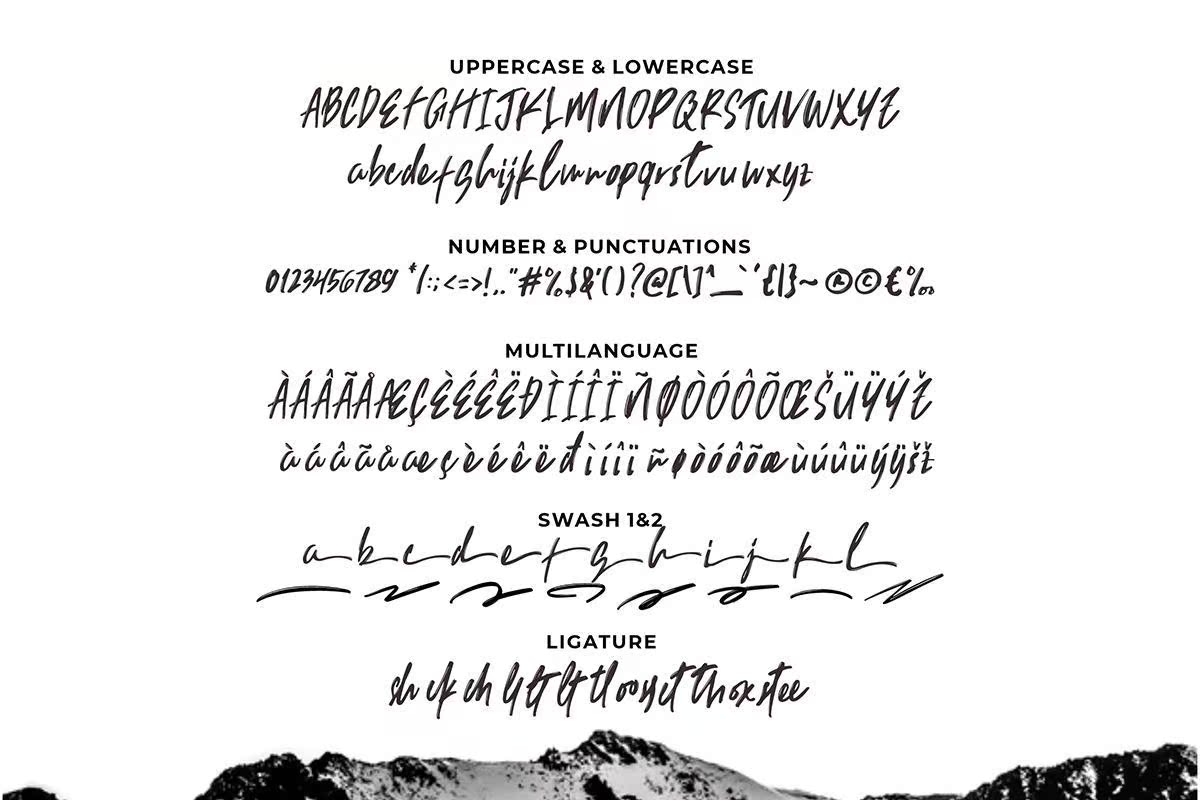 UPPERCASE & LOWERCASE
ABCDEFGHIJKLMNOPQRSTUVWXYZ
abcdefghijklmnopqrstuvwxyz
NUMBER & PUNCTUATIONS
0123456789 */:;<=>!,."#%$&'()?@[\]^_`´{|}~®©€‰
MULTILANGUAGE
ÀÁÂÃÅÆÇÈÉÊËÐÌÍÎÏÑØÒÓÔÕŒŠÜŸÝŽ
àáâãåæçèéêëđìíîïñøòóôõœùúûüýÿšž
SWASH 1&2
abcdefghijkl
LIGATURE